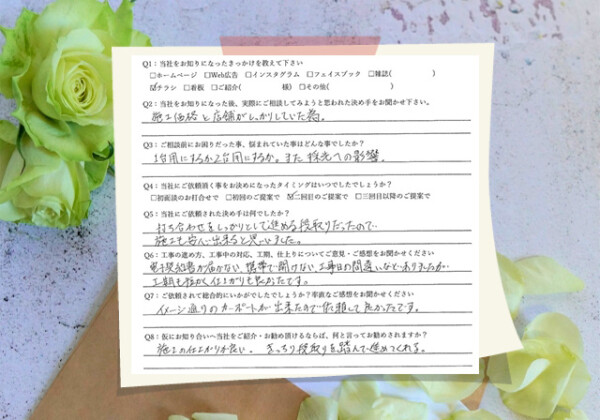 Q1：当社をお知りになったきっかけを教えて下さい
□ホームページ □Web広告 □インスタグラム □フェイスブック □雑誌( )
☑チラシ □看板 □ご紹介( 様) □その他( )
Q2：当社をお知りになった後、実際にご相談してみようと思われた決め手をお聞かせ下さい。
施工価格と店舗がしっかりしていた為。
Q3：ご相談前にお困りだった事、悩まれていた事はどんな事でしたか？
1台用にするか2台用にするか。また採光への影響。
Q4：当社にご依頼頂く事をお決めになったタイミングはいつでしたでしょうか？
□初面談のお打合せで □初回のご提案で ☑二回目のご提案で □三回目以降のご提案で
Q5：当社にご依頼された決め手は何でしたか？
打ち合わせをしっかりとして進める段取りだったので
施工も安心出来ると思いました。
Q6：工事の進め方、工事中の対応、工期、仕上りについてご意見・ご感想をお聞かせください
電子契約書が届かない、携帯で開けない工事日の間違いなどありましたが
工期も短かく仕上がりも良かったです。
Q7：ご依頼されて総合的にいかがでしたでしょうか？率直なご感想をお聞かせください
イメージ通りのカーポートが出来たので依頼して良かったです。
Q8：仮にお知り合いへ当社をご紹介・お勧め頂けるならば、何と言ってお勧めされますか？
施工の仕上がりが良い。きっちり段取りを踏んで進めてくれる。